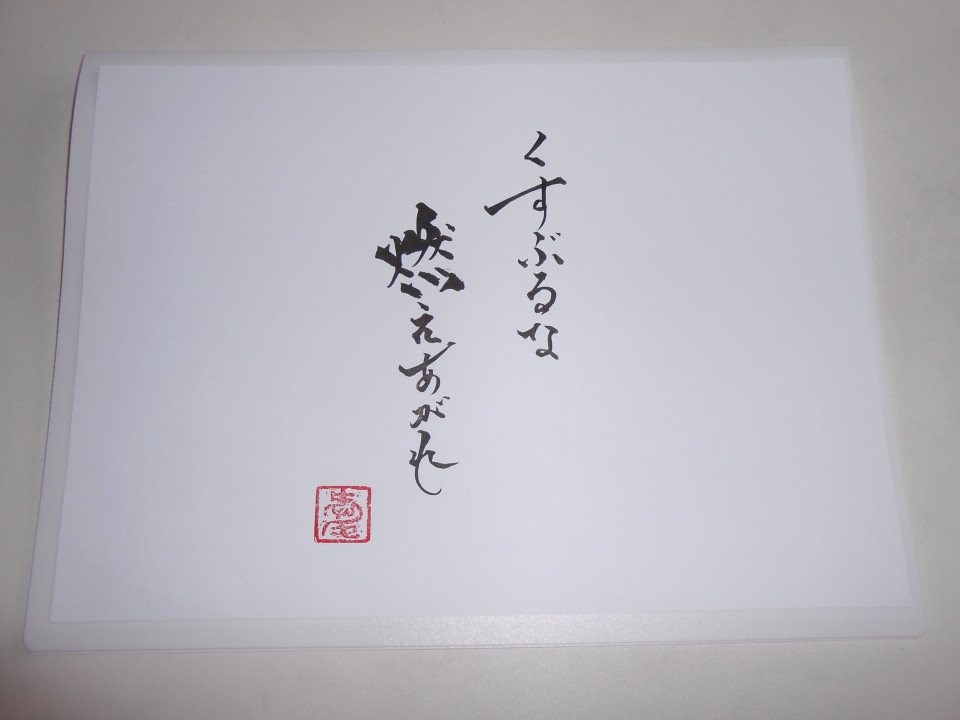 くすぶるな
燃えあがれ